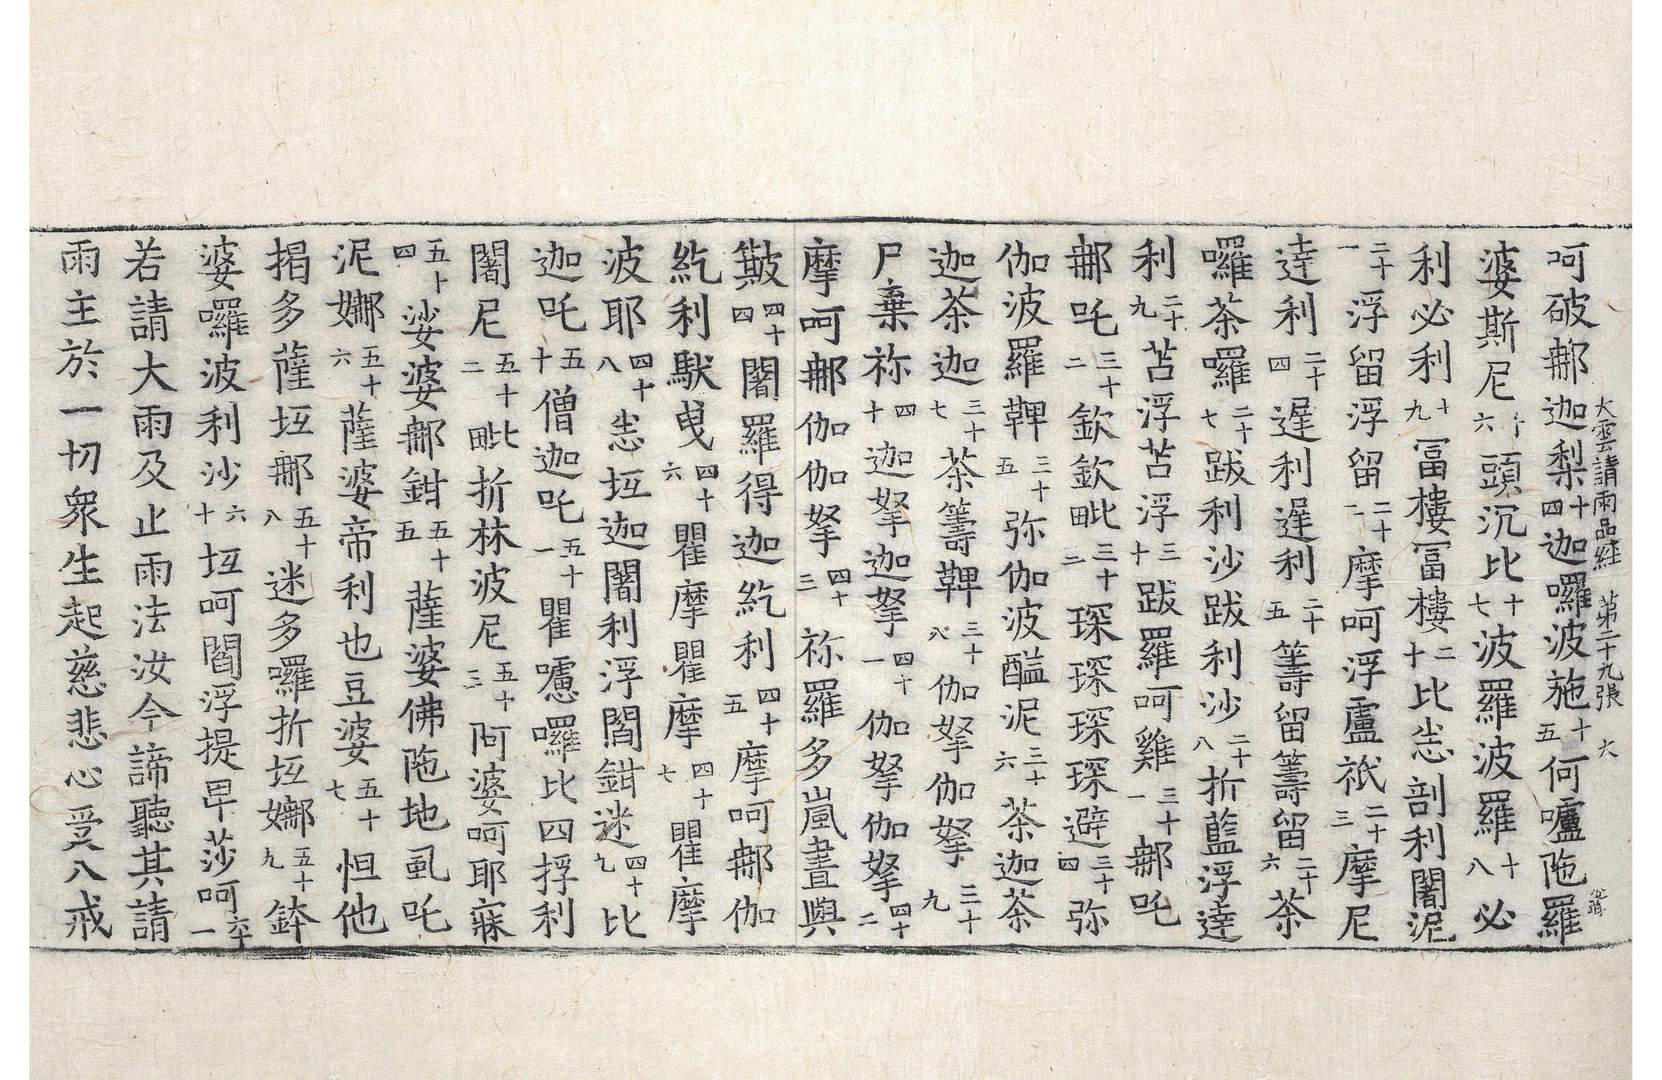 呵破𨚗迦梨十四迦囉波施十五何嚧陁羅
大雲請雨品経 第二十九張 大
婆斯尼十六頭沉比十七波羅波羅十八必
利必利十九冨樓冨樓二十比𢘿剖利闍泥
二十一浮留浮留二十二摩呵浮盧袛二十三摩尼
逹利二十四遟利遟利二十五籌留籌留二十六荼
囉荼囉二十七跋利沙跋利沙二十八折藍浮逹
利二十九苫浮苫浮三十跋羅呵雞三十一𨚗吒
𨚗吒三十二欽欽毗三十三琛琛琛琛避三十四弥
伽波羅鞞三十五弥伽波醯泥三十六荼迦荼
迦荼迦三十七荼籌鞞三十八伽拏伽拏三十九
尸棄祢四十迦拏迦拏四十一伽拏伽拏四十二
摩呵𨚗伽伽拏四十三祢羅多嵐晝與
簸四十四闍羅得迦紇利四十五摩呵𨚗伽
紇利馱曳四十六瞿摩瞿摩四十七瞿摩
波耶四十八𢘿坻迦闍利浮閻鉗迷四十九比
迦吒五十僧迦吒五十一瞿𢠢囉比四捊利
闍尼五十二毗折林波尼五十三阿婆呵耶寐
五十四娑婆𨚗鉗五十五薩婆佛陁地虱吒
泥娜五十六薩婆帝利也豆婆五十七怛他
揭多薩坻𨚗五十八迷多囉折坻娜五十九鉢
婆囉波利沙六十坻呵閻浮提卑莎呵六十一
若請大雨及止雨法汝今諦聽其請
雨主於一切衆生起慈悲心受八戒